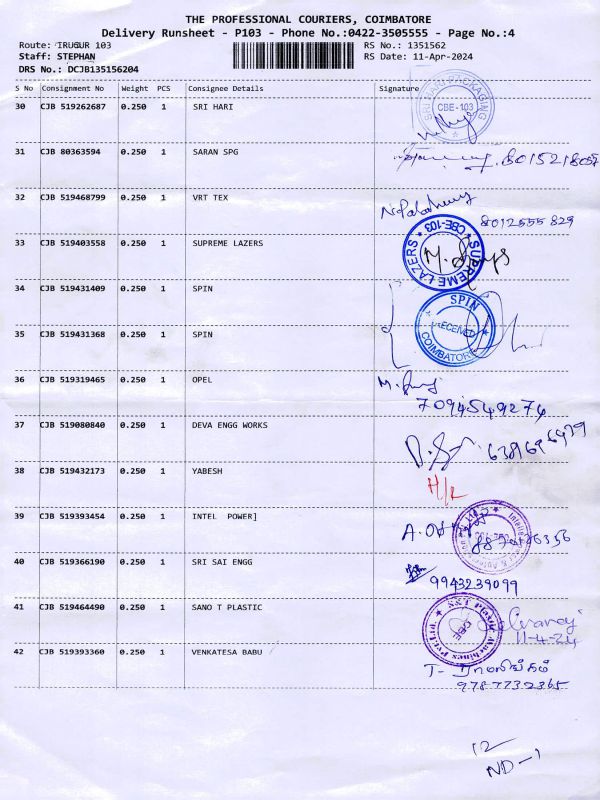 THE PROFESSIONAL COURIERS, COIMBATORE
Delivery Runsheet - P103 - Phone No.:0422-3505555 - Page No.:4
Route: IRUGUR 103 RS No.: 1351562
Staff: STEPHAN RS Date: 11-Apr-2024
DRS No.: DCJB135156204
S No Consignment No Weight PCS Consignee Details Signature
30 CJB 519262687 0.250 1 SRI HARI
SRI HARI PACKAGING
CBE-103
31 CJB 80363594 0.250 1 SARAN SPG
8015218057
32 CJB 519468799 0.250 1 VRT TEX
8012555829
33 CJB 519403558 0.250 1 SUPREME LAZERS
SUPREME LAZERS
CBE-103
34 CJB 519431409 0.250 1 SPIN
SPIN
RECEIVED
COIMBATORE
35 CJB 519431368 0.250 1 SPIN
36 CJB 519319465 0.250 1 OPEL
7094549274
37 CJB 519080840 0.250 1 DEVA ENGG WORKS
38 CJB 519432173 0.250 1 YABESH
39 CJB 519393454 0.250 1 INTEL POWER]
40 CJB 519366190 0.250 1 SRI SAI ENGG
9943239099
41 CJB 519464490 0.250 1 SANO T PLASTIC
11-4-24
42 CJB 519393360 0.250 1 VENKATESA BABU
9787732365
12
ND-1